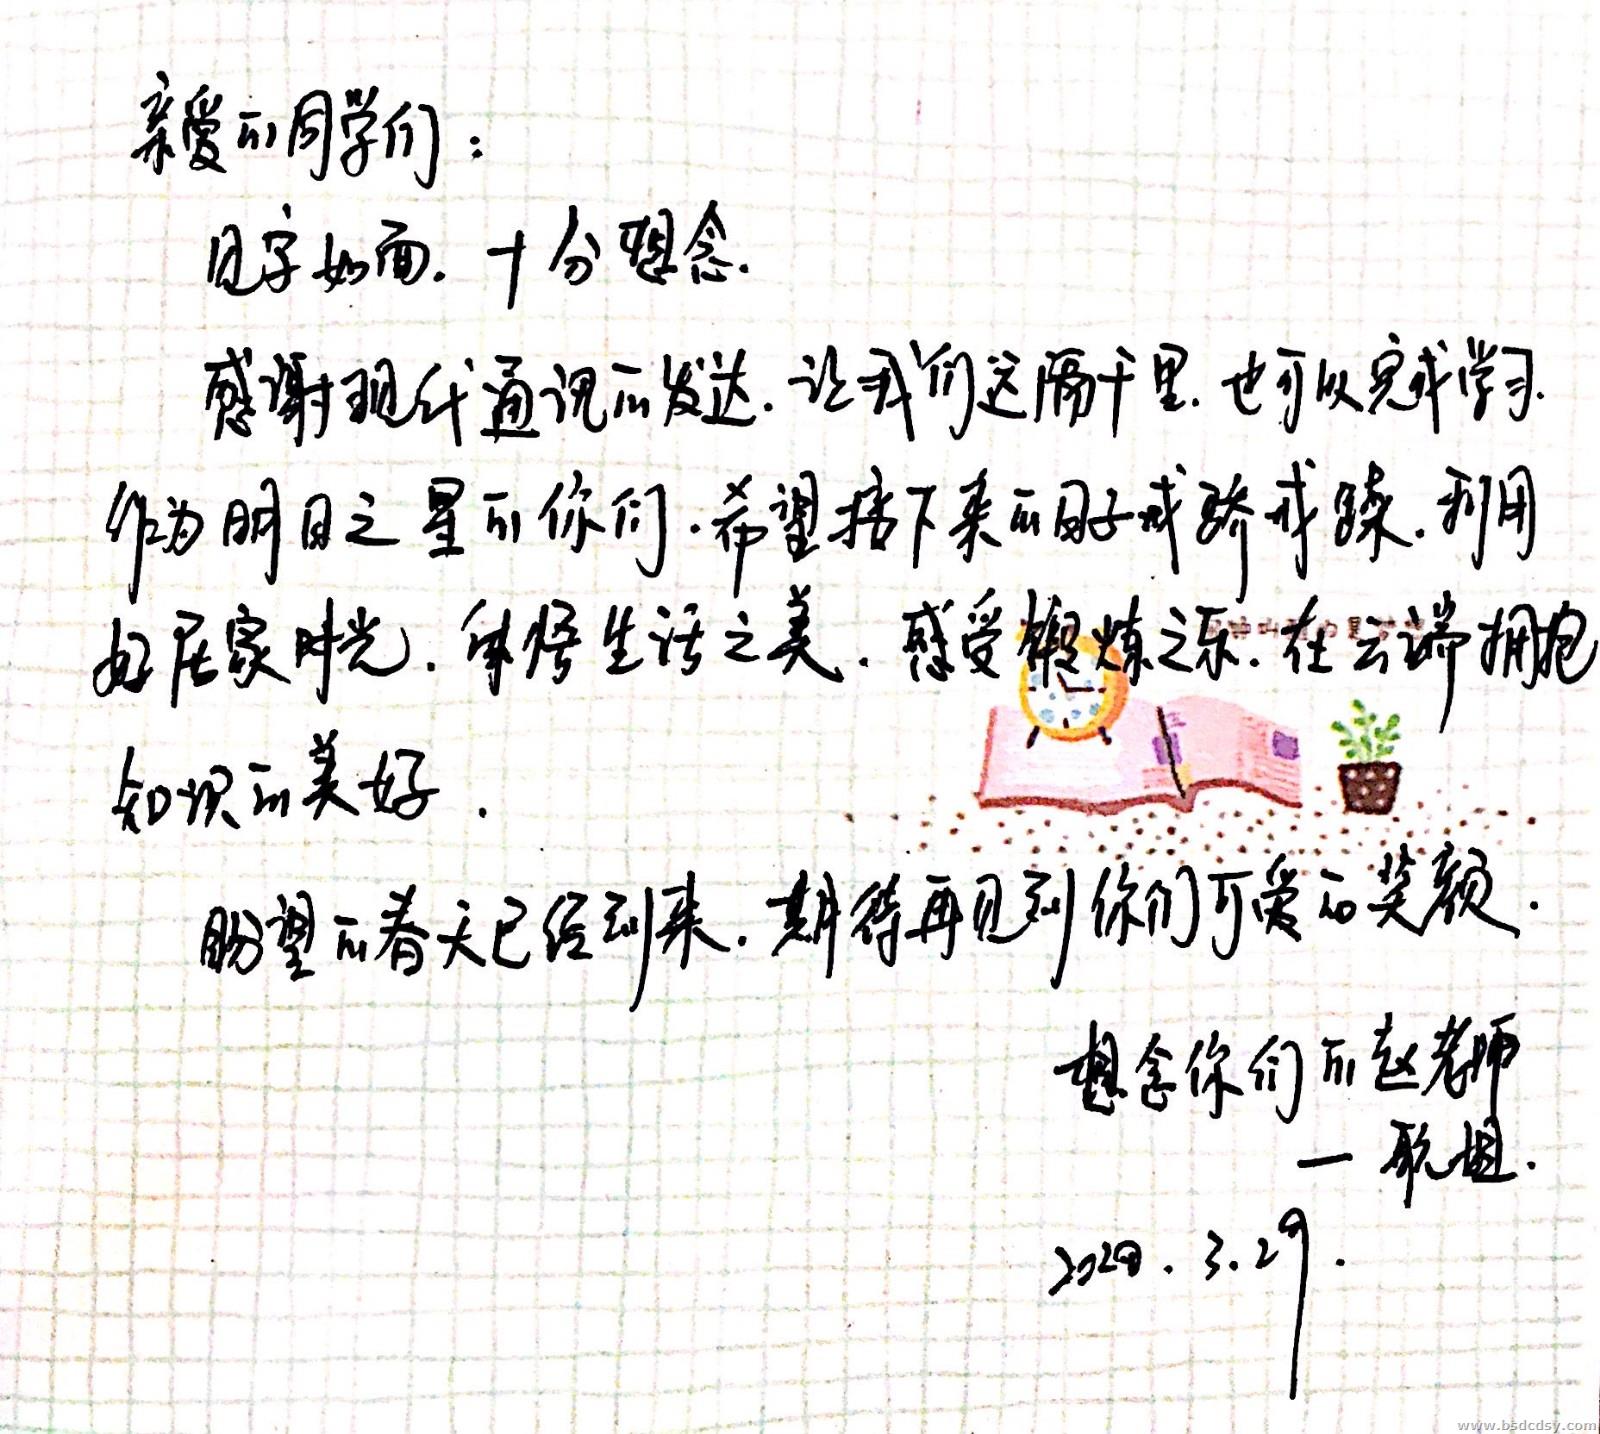 亲爱的同学们：
见字如面.十分想念.
感谢现代通讯的发达.让我们远隔千里.也可以完成学习.
作为明日之星的你们.希望接下来的日子戒骄戒躁.利用
好居家时光.体悟生活之美.感受锻炼之乐.在云端拥抱
知识的美好.
盼望的春天已经到来.期待再见到你们可爱的笑颜.
想念你们的赵老师
—耿姐.
2020.3.29.
www.bsdcdsy.com